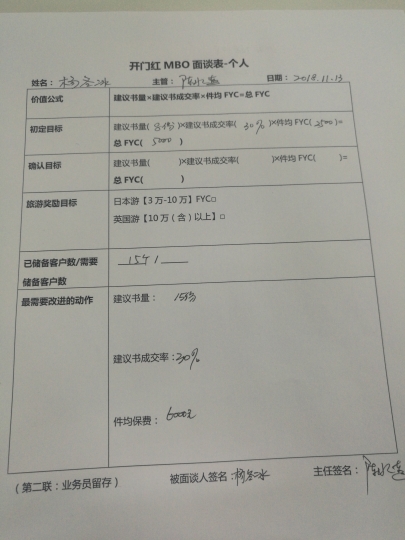 开门红 MBO 面谈表-个人
姓名： 主管： 日期：2018.11.13
价值公式 建议书量×建议书成交率×件均 FYC=总 FYC
初定目标 建议书量( )×建议书成交率( 30% )×件均 FYC( )=
总 FYC( 5000 )
确认目标 建议书量( )×建议书成交率( )×件均 FYC( )=
总 FYC( )
旅游奖励目标 日本游【3 万-10 万】FYC□
英国游【10 万（含）以上】□
已储备客户数/需要
储备客户数
最需要改进的动作 建议书量：
建议书成交率：30%
件均保费：
（第二联：业务员留存） 被面谈人签名： 主任签名：